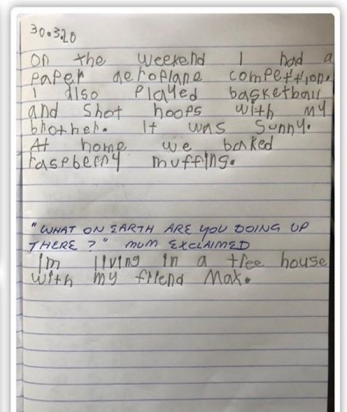 30.3.20
On the weekend I had a
paper aeroplane compettion.
I also Played basketball
and shot hoops with my
brother. It was sunny.
At home we baked
raspberry muffins.
"WHAT ON EARTH ARE YOU DOING UP
THERE?" MUM EXCLAIMED
Im living in a tree house
with my friend Max.